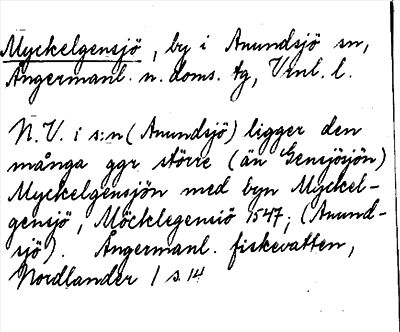 Myckelgensjö, by i Anundsjö sn,
Ångermanl. n. doms. tg, Vnl. l.
N.V. i s:n (Anundsjö) ligger den
många ggr större (än Gensjösjön)
Myckelgensjön med byn Myckel-
gensjö, Möcklegensiö 1547; (Anund-
sjö). Ångermanl. fiskevatten,
Nordlander 1 s. 14